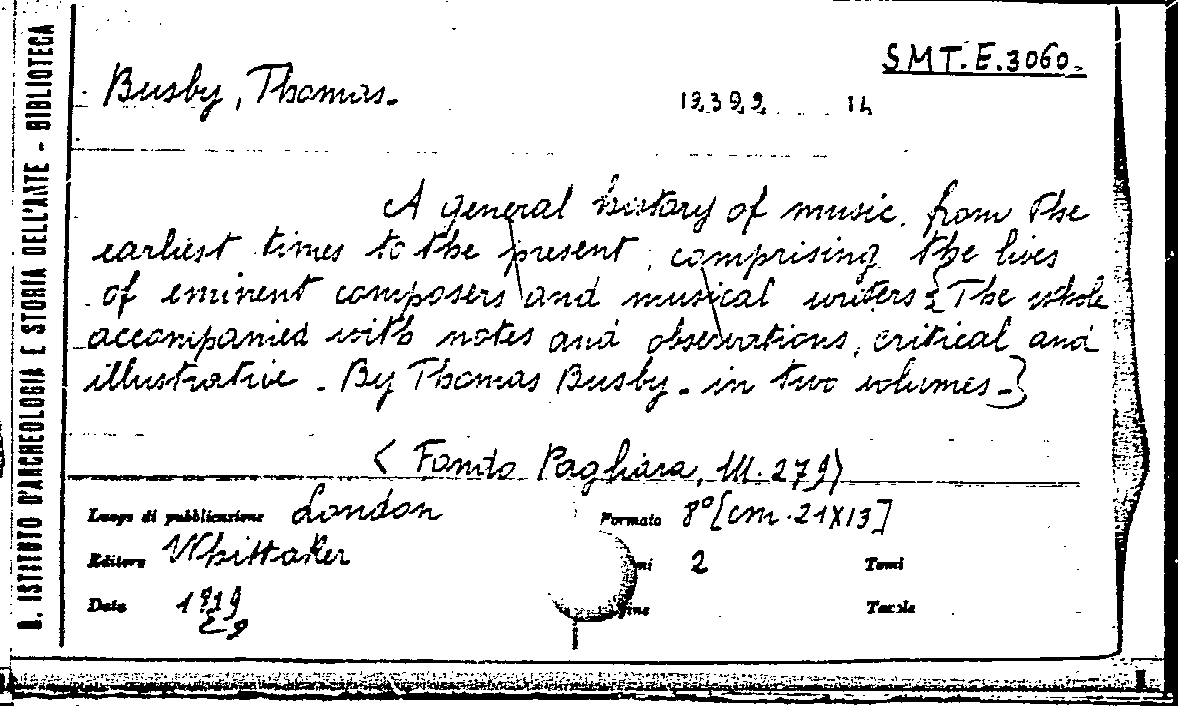 R. ISTITUTO D'ARCHEOLOGIA E STORIA DELL'ARTE - BIBLIOTECA
SMT.E.3060.
Busby, Thomas.
A general history of music, from the
earliest times to the present; comprising the lives
of eminent composers and musical writers {The whole
accompanied with notes and observations, critical and
illustrative. By Thomas Busby. in two volumes.}
(Fondo Pagliara, III. 279)
Luogo di pubblicazione London
Formato 8° [cm. 21X13]
Editore Whittaker
2
Tomi
Data 1819
Tavole